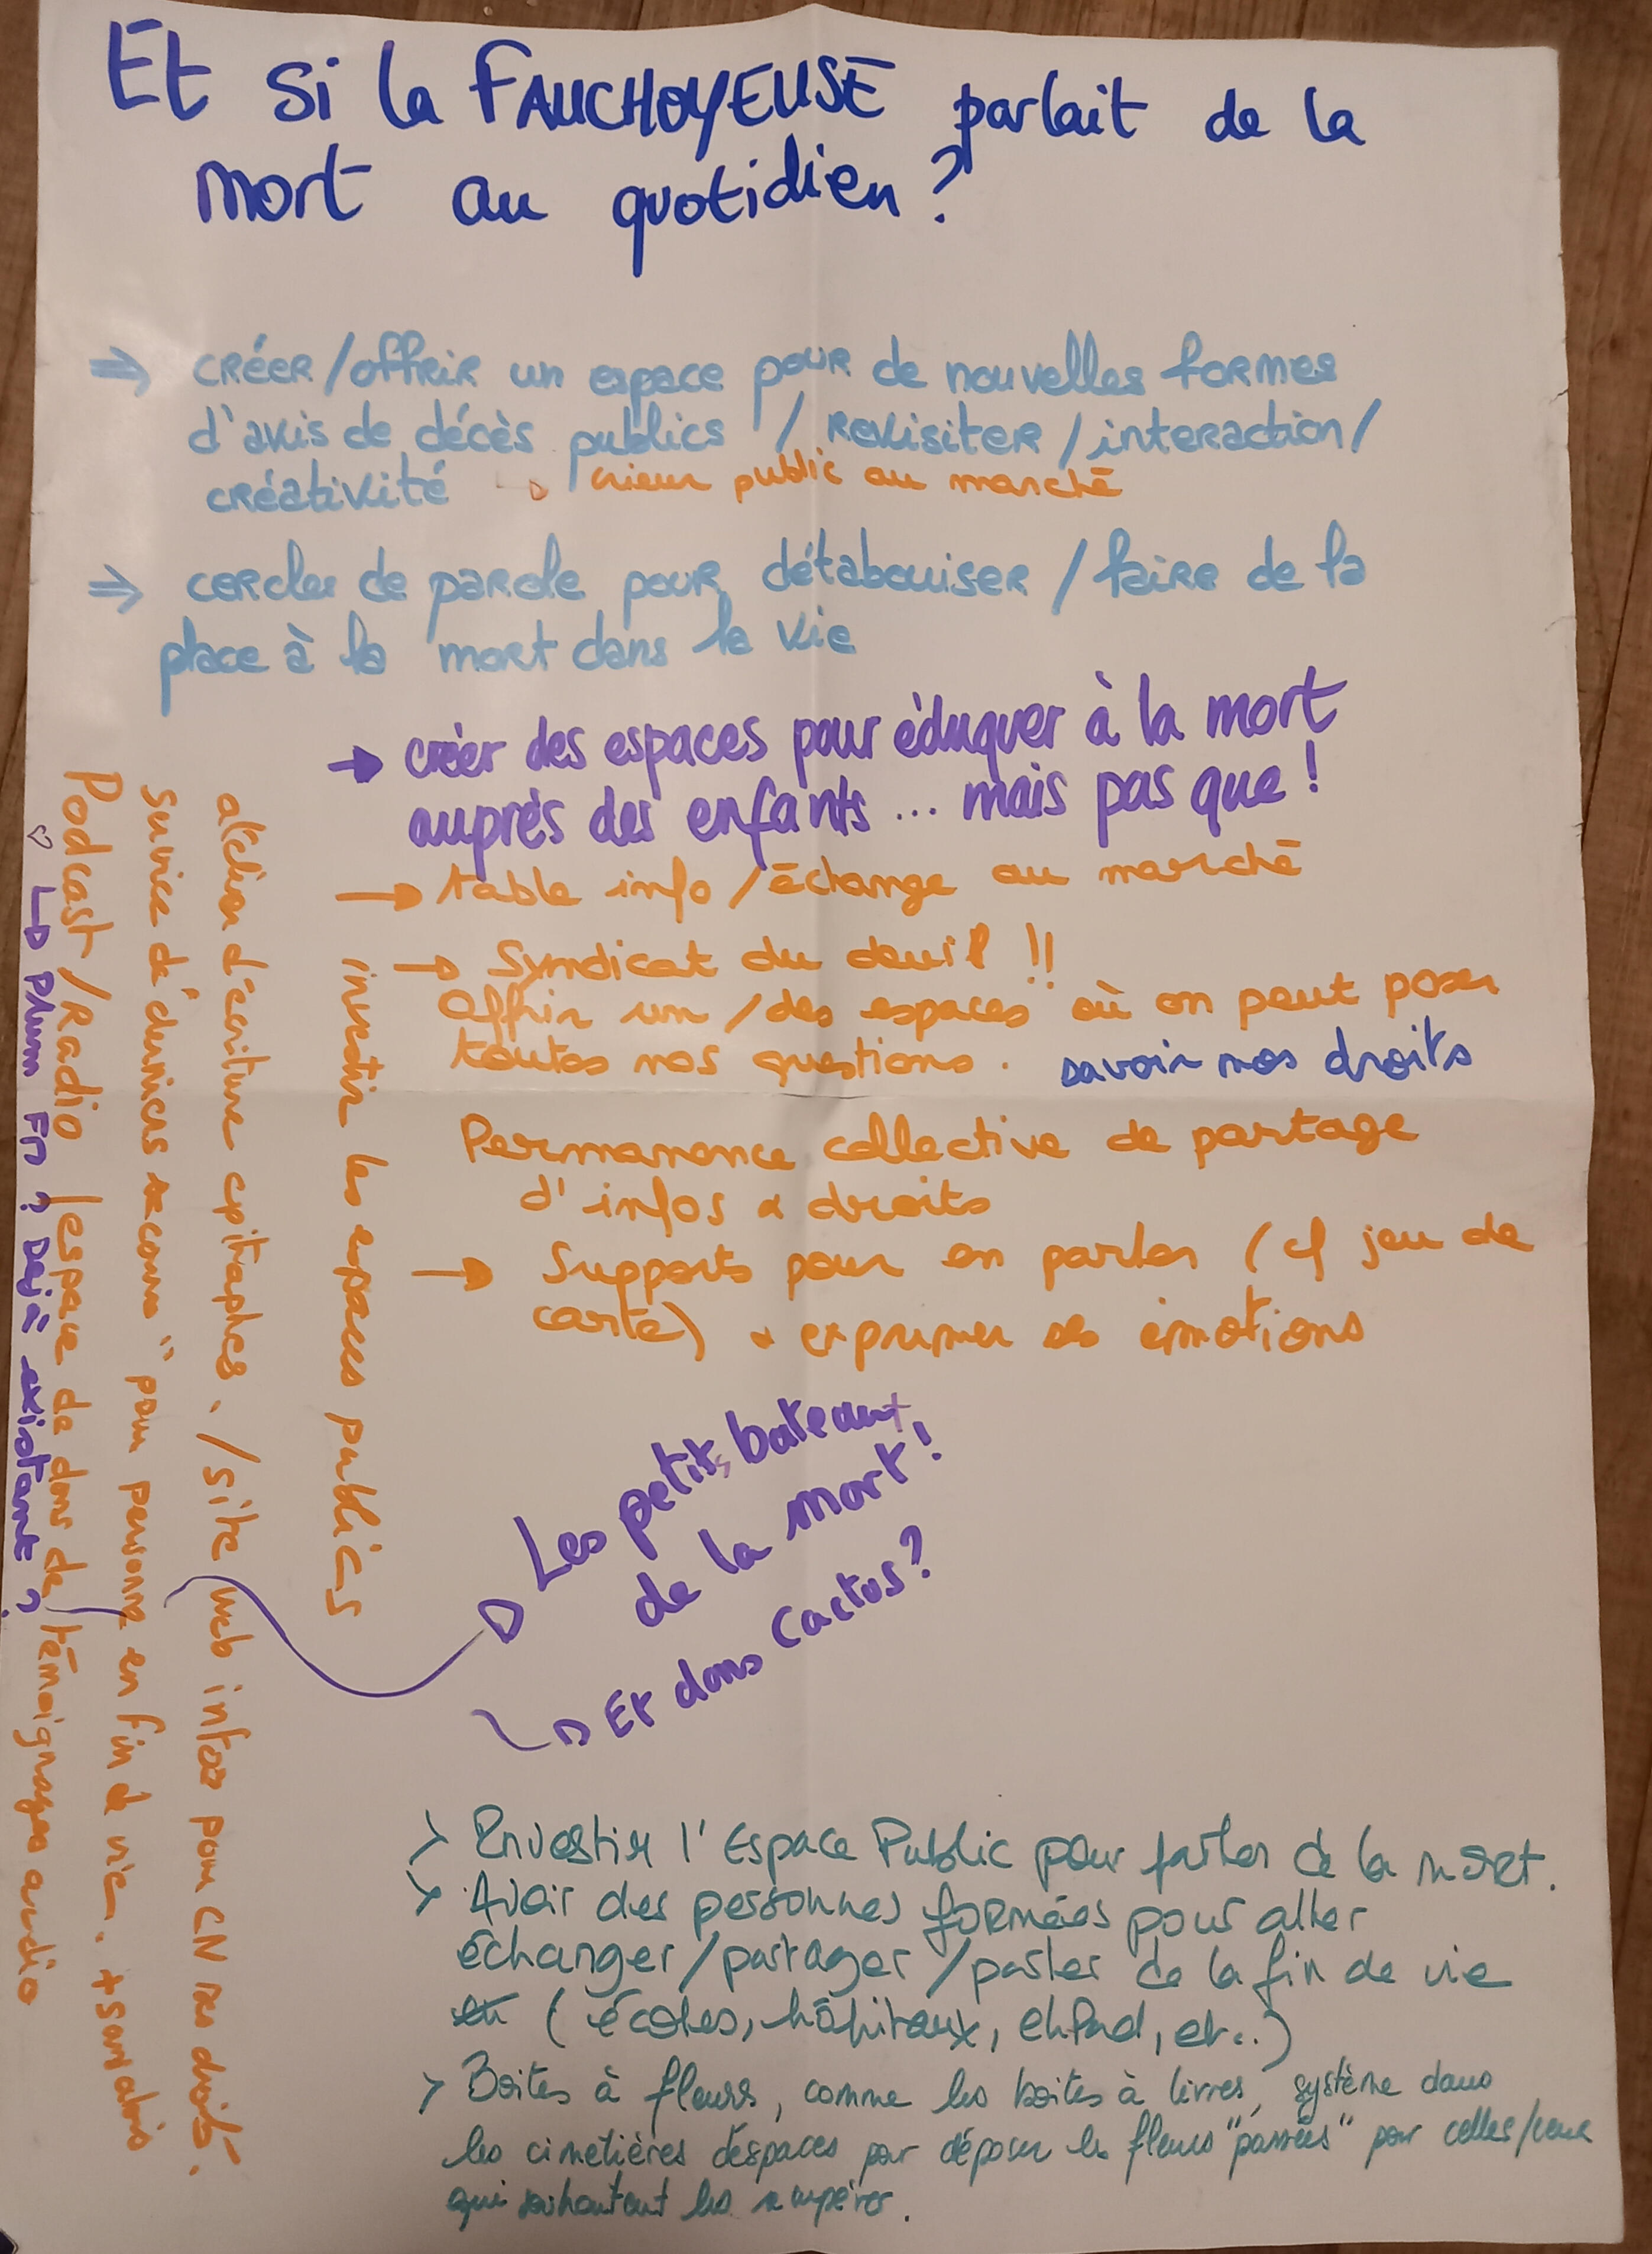 Et si la FAUCHOYEUSE parlait de la
mort au quotidien ?
⇒ créer/offrir un espace pour de nouvelles formes
d'avis de décès publics / revisiter / interaction /
créativité → crieur public au marché
⇒ cercles de parole pour détabouiser / faire de la
place à la mort dans la vie
→ créer des espaces pour éduquer à la mort
auprès des enfants ... mais pas que !
→ table info / échange au marché
→ Syndicat du deuil !!
Offrir un / des espaces où on peut poser
toutes nos questions. savoir nos droits
Permanence collective de partage
d'infos & droits
→ Supports pour en parler (cf jeu de
carte) & exprimer ses émotions
investir les espaces publics
atelier d'écriture épitaphes. / site web infos pour CN nos droits.
Service de "derniers secours" pour personne en fin de vie. +
Podcast / Radio / espace de dons de témoignages audio
↳ PAUM FM ? Déjà existante ?
→ Les petits bateaux
de la mort !
→ Et dans Cactus ?
> Investir l'Espace Public pour parler de la mort.
> Avoir des personnes formées pour aller
échanger / partager / parler de la fin de vie
(écoles, hôpitaux, ehpad, etc..)
> Boites à fleurs, comme les boites à livres, système dans
les cimetières d'espaces pour déposer les fleurs "passées" pour celles/ceux
qui souhaitent les récupérer.